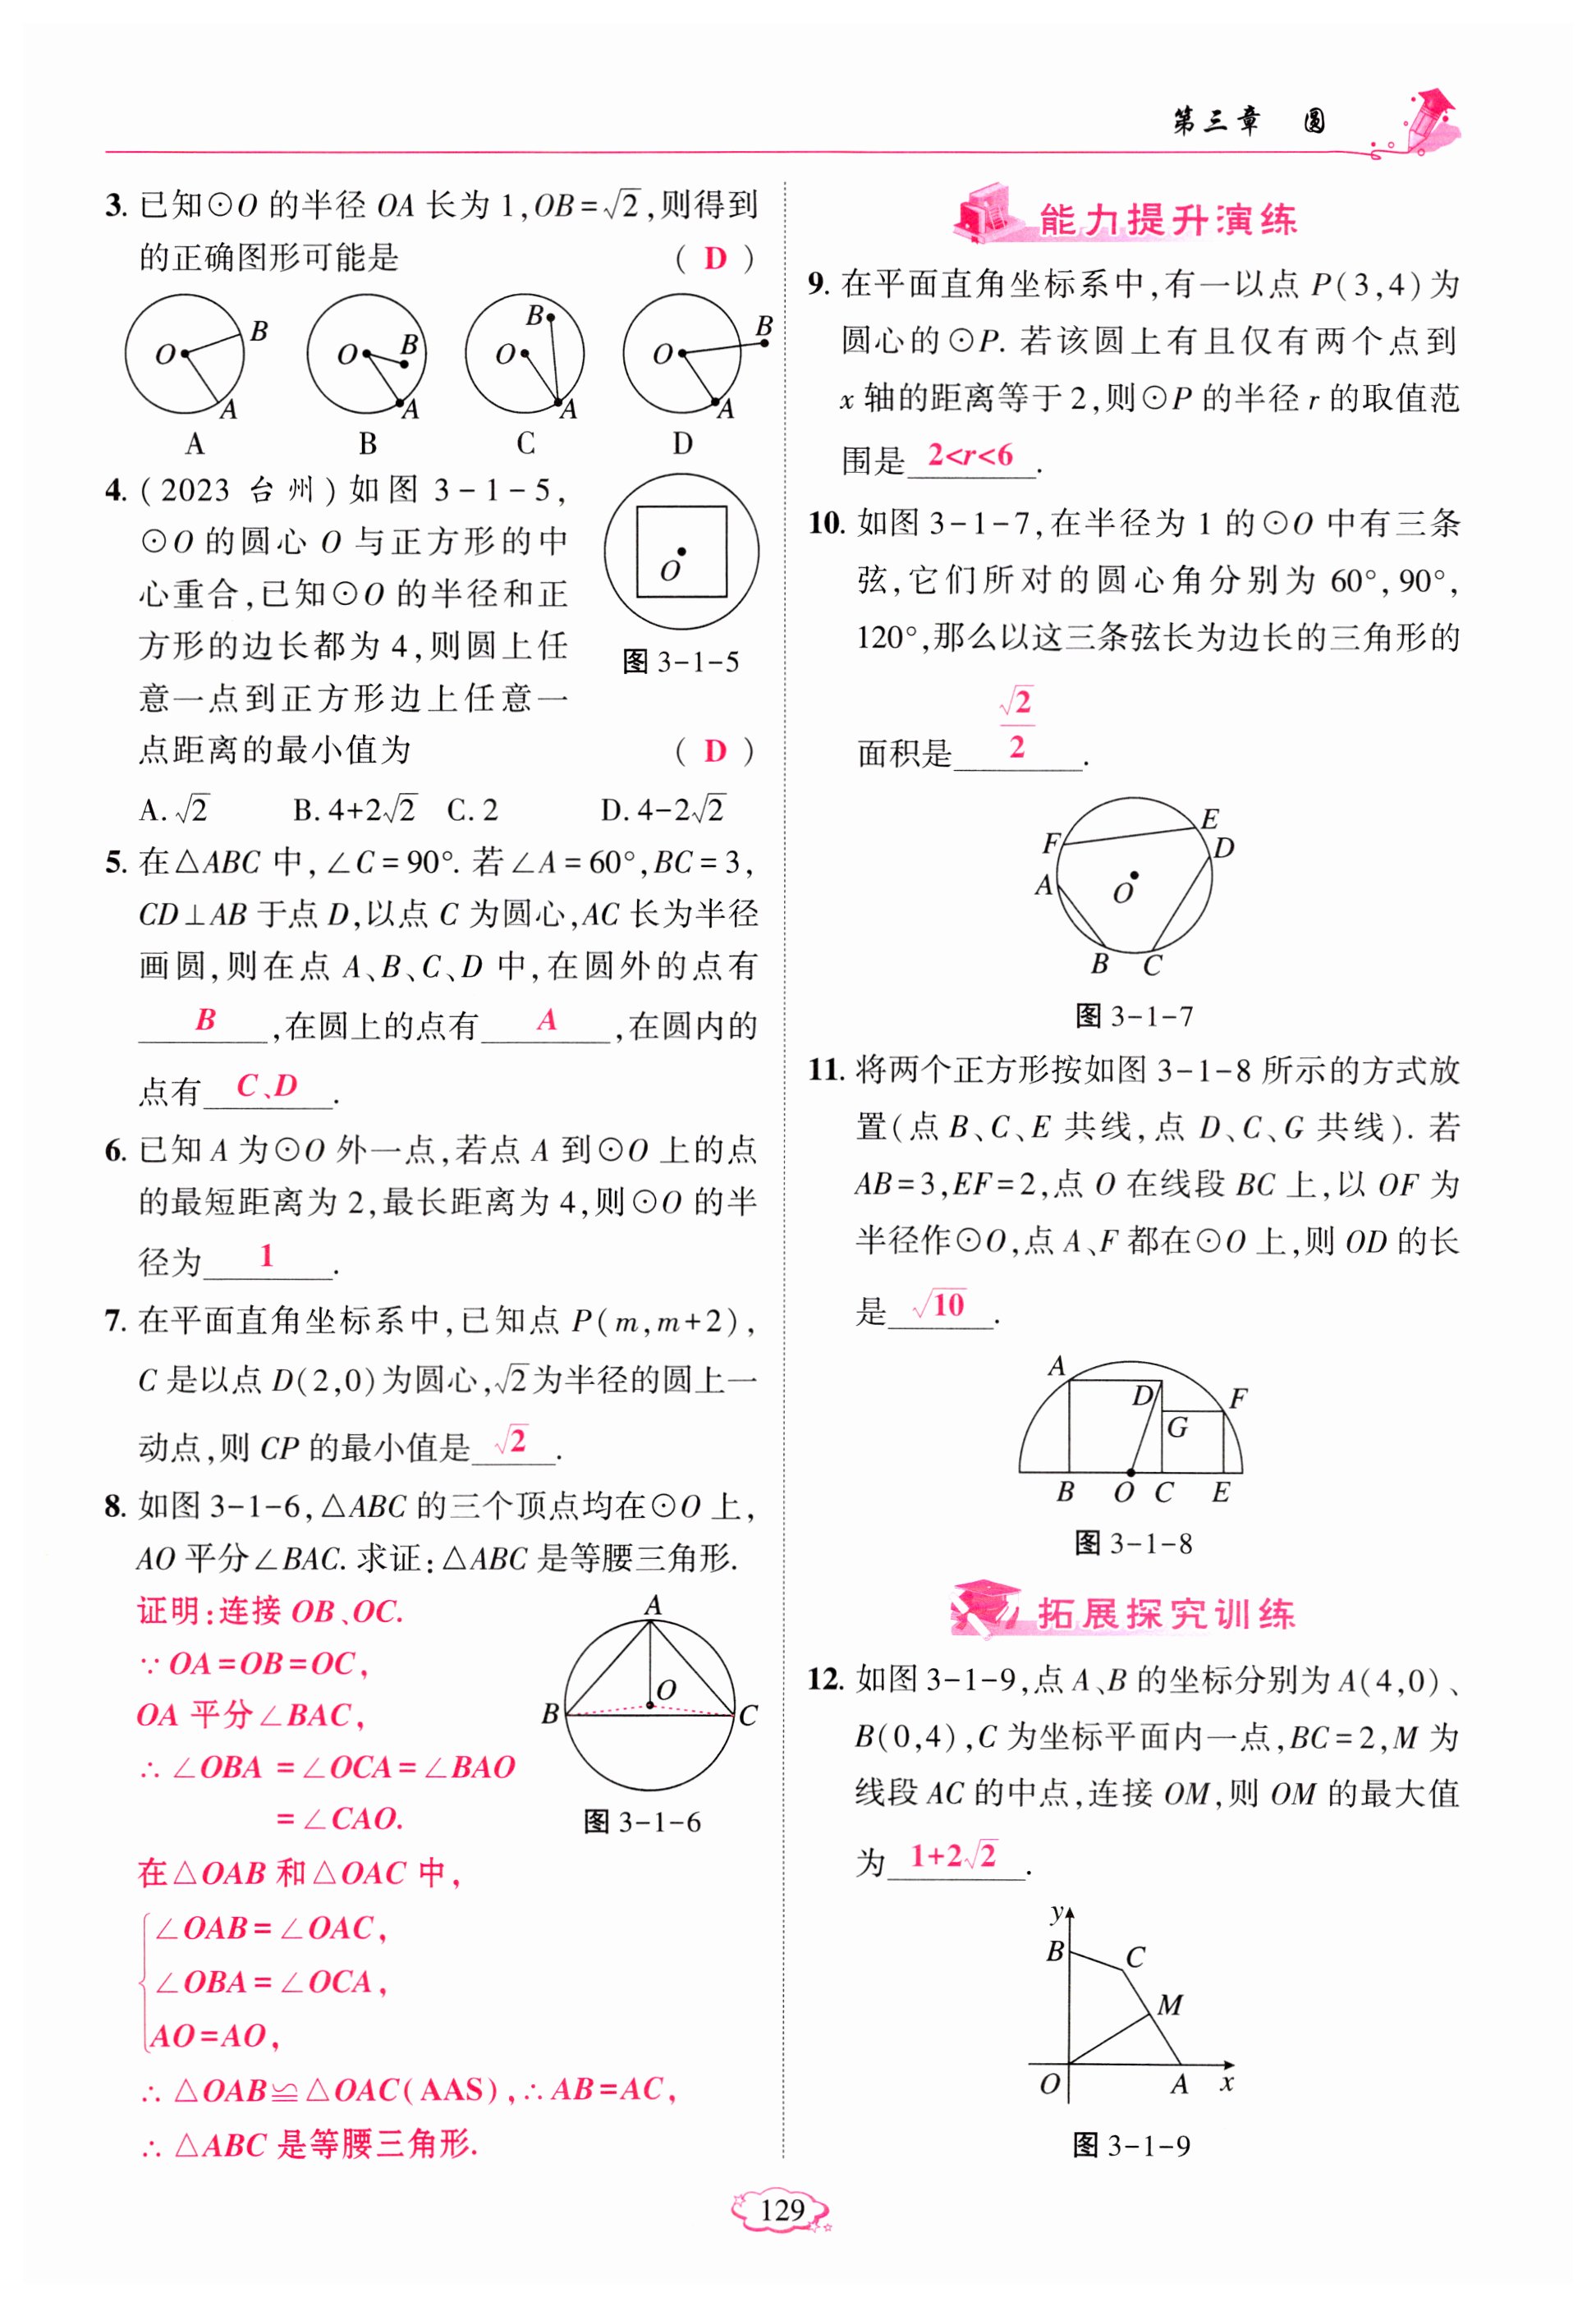 第三章 圆
3. 已知⊙O 的半径 OA 长为 1,OB=√2,则得到
的正确图形可能是 ( D )
O B A
O B A
B O A
O B A
A B C D
4. (2023 台州)如图 3-1-5,
⊙O 的圆心 O 与正方形的中
心重合,已知⊙O 的半径和正
方形的边长都为 4,则圆上任
意一点到正方形边上任意一
点距离的最小值为 ( D )
O
图 3-1-5
A. √2 B. 4+2√2 C. 2 D. 4-2√2
5. 在△ABC 中,∠C=90°. 若∠A=60°,BC=3,
CD⊥AB 于点 D,以点 C 为圆心,AC 长为半径
画圆,则在点 A、B、C、D 中,在圆外的点有
B ,在圆上的点有 A ,在圆内的
点有 C、D .
6. 已知 A 为⊙O 外一点,若点 A 到⊙O 上的点
的最短距离为 2,最长距离为 4,则⊙O 的半
径为 1 .
7. 在平面直角坐标系中,已知点 P(m,m+2),
C 是以点 D(2,0)为圆心,√2为半径的圆上一
动点,则 CP 的最小值是 √2 .
8. 如图 3-1-6,△ABC 的三个顶点均在⊙O 上,
AO 平分∠BAC. 求证:△ABC 是等腰三角形.
证明:连接 OB、OC.
∵ OA=OB=OC,
OA 平分∠BAC,
∴ ∠OBA =∠OCA=∠BAO
=∠CAO.
在△OAB 和△OAC 中,
∠OAB=∠OAC,
∠OBA=∠OCA,
AO=AO,
∴ △OAB≌△OAC(AAS),∴ AB=AC,
∴ △ABC 是等腰三角形.
A
O
B C
图 3-1-6
能力提升演练
9. 在平面直角坐标系中,有一以点 P(3,4)为
圆心的⊙P. 若该圆上有且仅有两个点到
x 轴的距离等于 2,则⊙P 的半径 r 的取值范
围是 2<r<6 .
10. 如图 3-1-7,在半径为 1 的⊙O 中有三条
弦,它们所对的圆心角分别为 60°,90°,
120°,那么以这三条弦长为边长的三角形的
面积是 √2/2 .
E
F D
A O
B C
图 3-1-7
11. 将两个正方形按如图 3-1-8 所示的方式放
置(点 B、C、E 共线,点 D、C、G 共线). 若
AB=3,EF=2,点 O 在线段 BC 上,以 OF 为
半径作⊙O,点 A、F 都在⊙O 上,则 OD 的长
是 √10 .
A
D F
G
B O C E
图 3-1-8
拓展探究训练
12. 如图 3-1-9,点 A、B 的坐标分别为 A(4,0)、
B(0,4),C 为坐标平面内一点,BC=2,M 为
线段 AC 的中点,连接 OM,则 OM 的最大值
为 1+2√2 .
y
B C
M
O A x
图 3-1-9
129